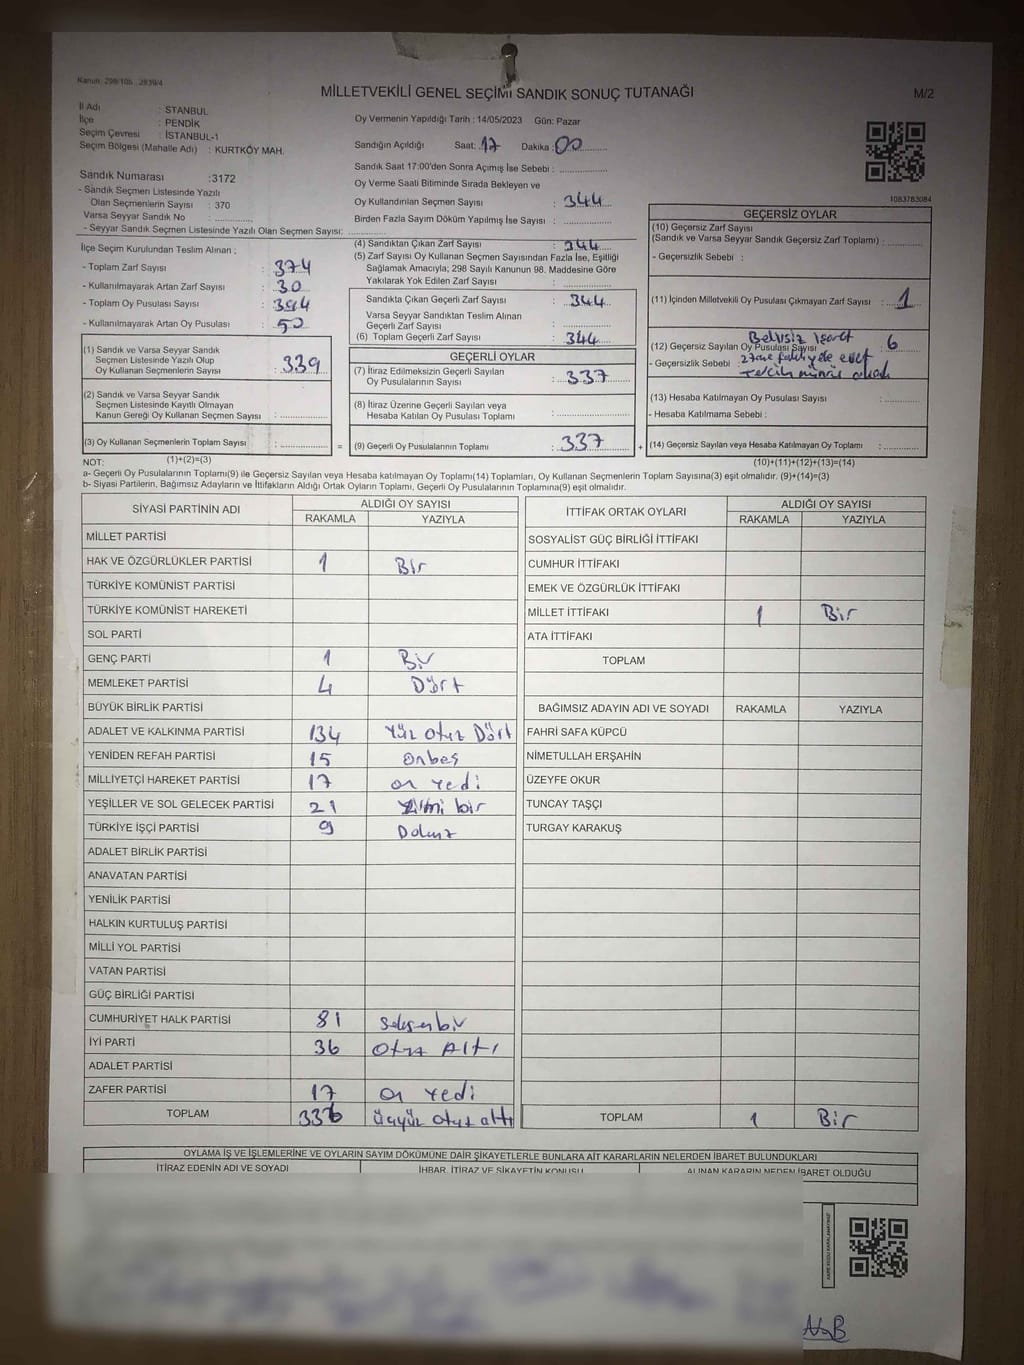 Kanun: 298/105 , 2839/4
MİLLETVEKİLİ GENEL SEÇİMİ SANDIK SONUÇ TUTANAĞI
M/2
İl Adı : STANBUL
İlçe : PENDİK
Seçim Çevresi : İSTANBUL-1
Seçim Bölgesi (Mahalle Adı) : KURTKÖY MAH.
Oy Vermenin Yapıldığı Tarih : 14/05/2023 Gün: Pazar
Sandığın Açıldığı Saat: 17 Dakika: 00
Sandık Saat 17:00'den Sonra Açımış İse Sebebi :
Oy Verme Saati Bitiminde Sırada Bekleyen ve
Oy Kullandırılan Seçmen Sayısı : 344
Birden Fazla Sayım Döküm Yapılmış İse Sayısı :
1083783084
Sandık Numarası :3172
- Sandık Seçmen Listesinde Yazılı
Olan Seçmenlerin Sayısı : 370
Varsa Seyyar Sandık No :
- Seyyar Sandık Seçmen Listesinde Yazılı Olan Seçmen Sayısı:
İlçe Seçim Kurulundan Teslim Alınan ;
- Toplam Zarf Sayısı : 374
- Kullanılmayarak Artan Zarf Sayısı : 30
- Toplam Oy Pusulası Sayısı : 394
- Kullanılmayarak Artan Oy Pusulası : 50
(1) Sandık ve Varsa Seyyar Sandık
Seçmen Listesinde Yazılı Olup
Oy Kullanan Seçmenlerin Sayısı : 339
(2) Sandık ve Varsa Seyyar Sandık
Seçmen Listesinde Kayıtlı Olmayan
Kanun Gereği Oy Kullanan Seçmen Sayısı :
(3) Oy Kullanan Seçmenlerin Toplam Sayısı :
(1)+(2)=(3)
(4) Sandıktan Çıkan Zarf Sayısı : 344
(5) Zarf Sayısı Oy Kullanan Seçmen Sayısından Fazla İse, Eşitliği
Sağlamak Amacıyla; 298 Sayılı Kanunun 98. Maddesine Göre
Yakılarak Yok Edilen Zarf Sayısı :
Sandıkta Çıkan Geçerli Zarf Sayısı : 344
Varsa Seyyar Sandıktan Teslim Alınan
Geçerli Zarf Sayısı :
(6) Toplam Geçerli Zarf Sayısı : 344
GEÇERLİ OYLAR
(7) İtiraz Edilmeksizin Geçerli Sayılan
Oy Pusulalarının Sayısı : 337
(8) İtiraz Üzerine Geçerli Sayılan veya
Hesaba Katılan Oy Pusulası Toplamı :
= (9) Geçerli Oy Pusulalarının Toplamı : 337 +
GEÇERSİZ OYLAR
(10) Geçersiz Zarf Sayısı
(Sandık ve Varsa Seyyar Sandık Geçersiz Zarf Toplamı) :
- Geçersizlik Sebebi :
(11) İçinden Milletvekili Oy Pusulası Çıkmayan Zarf Sayısı : 1
(12) Geçersiz Sayılan Oy Pusulası Sayısı : 6
- Geçersizlik Sebebi :
(13) Hesaba Katılmayan Oy Pusulası Sayısı :
- Hesaba Katılmama Sebebi :
(14) Geçersiz Sayılan veya Hesaba Katılmayan Oy Toplamı :
(10)+(11)+(12)+(13)=(14)
NOT:
a- Geçerli Oy Pusulalarının Toplamı(9) ile Geçersiz Sayılan veya Hesaba katılmayan Oy Toplamı(14) Toplamları, Oy Kullanan Seçmenlerin Toplam Sayısına(3) eşit olmalıdır. (9)+(14)=(3)
b- Siyasi Partilerin, Bağımsız Adayların ve İttifakların Aldığı Ortak Oyların Toplamı, Geçerli Oy Pusulalarının Toplamına(9) eşit olmalıdır.
SİYASİ PARTİNİN ADI ALDIĞI OY SAYISI
RAKAMLA YAZIYLA
MİLLET PARTİSİ
HAK VE ÖZGÜRLÜKLER PARTİSİ 1 Bir
TÜRKİYE KOMÜNİST PARTİSİ
TÜRKİYE KOMÜNİST HAREKETİ
SOL PARTİ
GENÇ PARTİ 1 Bir
MEMLEKET PARTİSİ 4 Dört
BÜYÜK BİRLİK PARTİSİ
ADALET VE KALKINMA PARTİSİ 134 Yüz otuz Dört
YENİDEN REFAH PARTİSİ 15 onbeş
MİLLİYETÇİ HAREKET PARTİSİ 17 on yedi
YEŞİLLER VE SOL GELECEK PARTİSİ 21 Yirmi bir
TÜRKİYE İŞÇİ PARTİSİ 9 Dokuz
ADALET BİRLİK PARTİSİ
ANAVATAN PARTİSİ
YENİLİK PARTİSİ
HALKIN KURTULUŞ PARTİSİ
MİLLİ YOL PARTİSİ
VATAN PARTİSİ
GÜÇ BİRLİĞİ PARTİSİ
CUMHURİYET HALK PARTİSİ 81 seksenbir
İYİ PARTİ 36 otuz Altı
ADALET PARTİSİ
ZAFER PARTİSİ 17 on yedi
TOPLAM 336 üçyüz otuz altı
İTTİFAK ORTAK OYLARI ALDIĞI OY SAYISI
RAKAMLA YAZIYLA
SOSYALİST GÜÇ BİRLİĞİ İTTİFAKI
CUMHUR İTTİFAKI
EMEK VE ÖZGÜRLÜK İTTİFAKI
MİLLET İTTİFAKI 1 Bir
ATA İTTİFAKI
TOPLAM
BAĞIMSIZ ADAYIN ADI VE SOYADI RAKAMLA YAZIYLA
FAHRİ SAFA KÜPCÜ
NİMETULLAH ERŞAHİN
ÜZEYFE OKUR
TUNCAY TAŞÇI
TURGAY KARAKUŞ
TOPLAM 1 Bir
OYLAMA İŞ VE İŞLEMLERİNE VE OYLARIN SAYIM DÖKÜMÜNE DAİR ŞİKAYETLERLE BUNLARA AİT KARARLARIN NELERDEN İBARET BULUNDUKLARI
İTİRAZ EDENİN ADI VE SOYADI İHBAR, İTİRAZ VE ŞİKAYETİN KONUSU ALINAN KARARIN NEDEN İBARET OLDUĞU